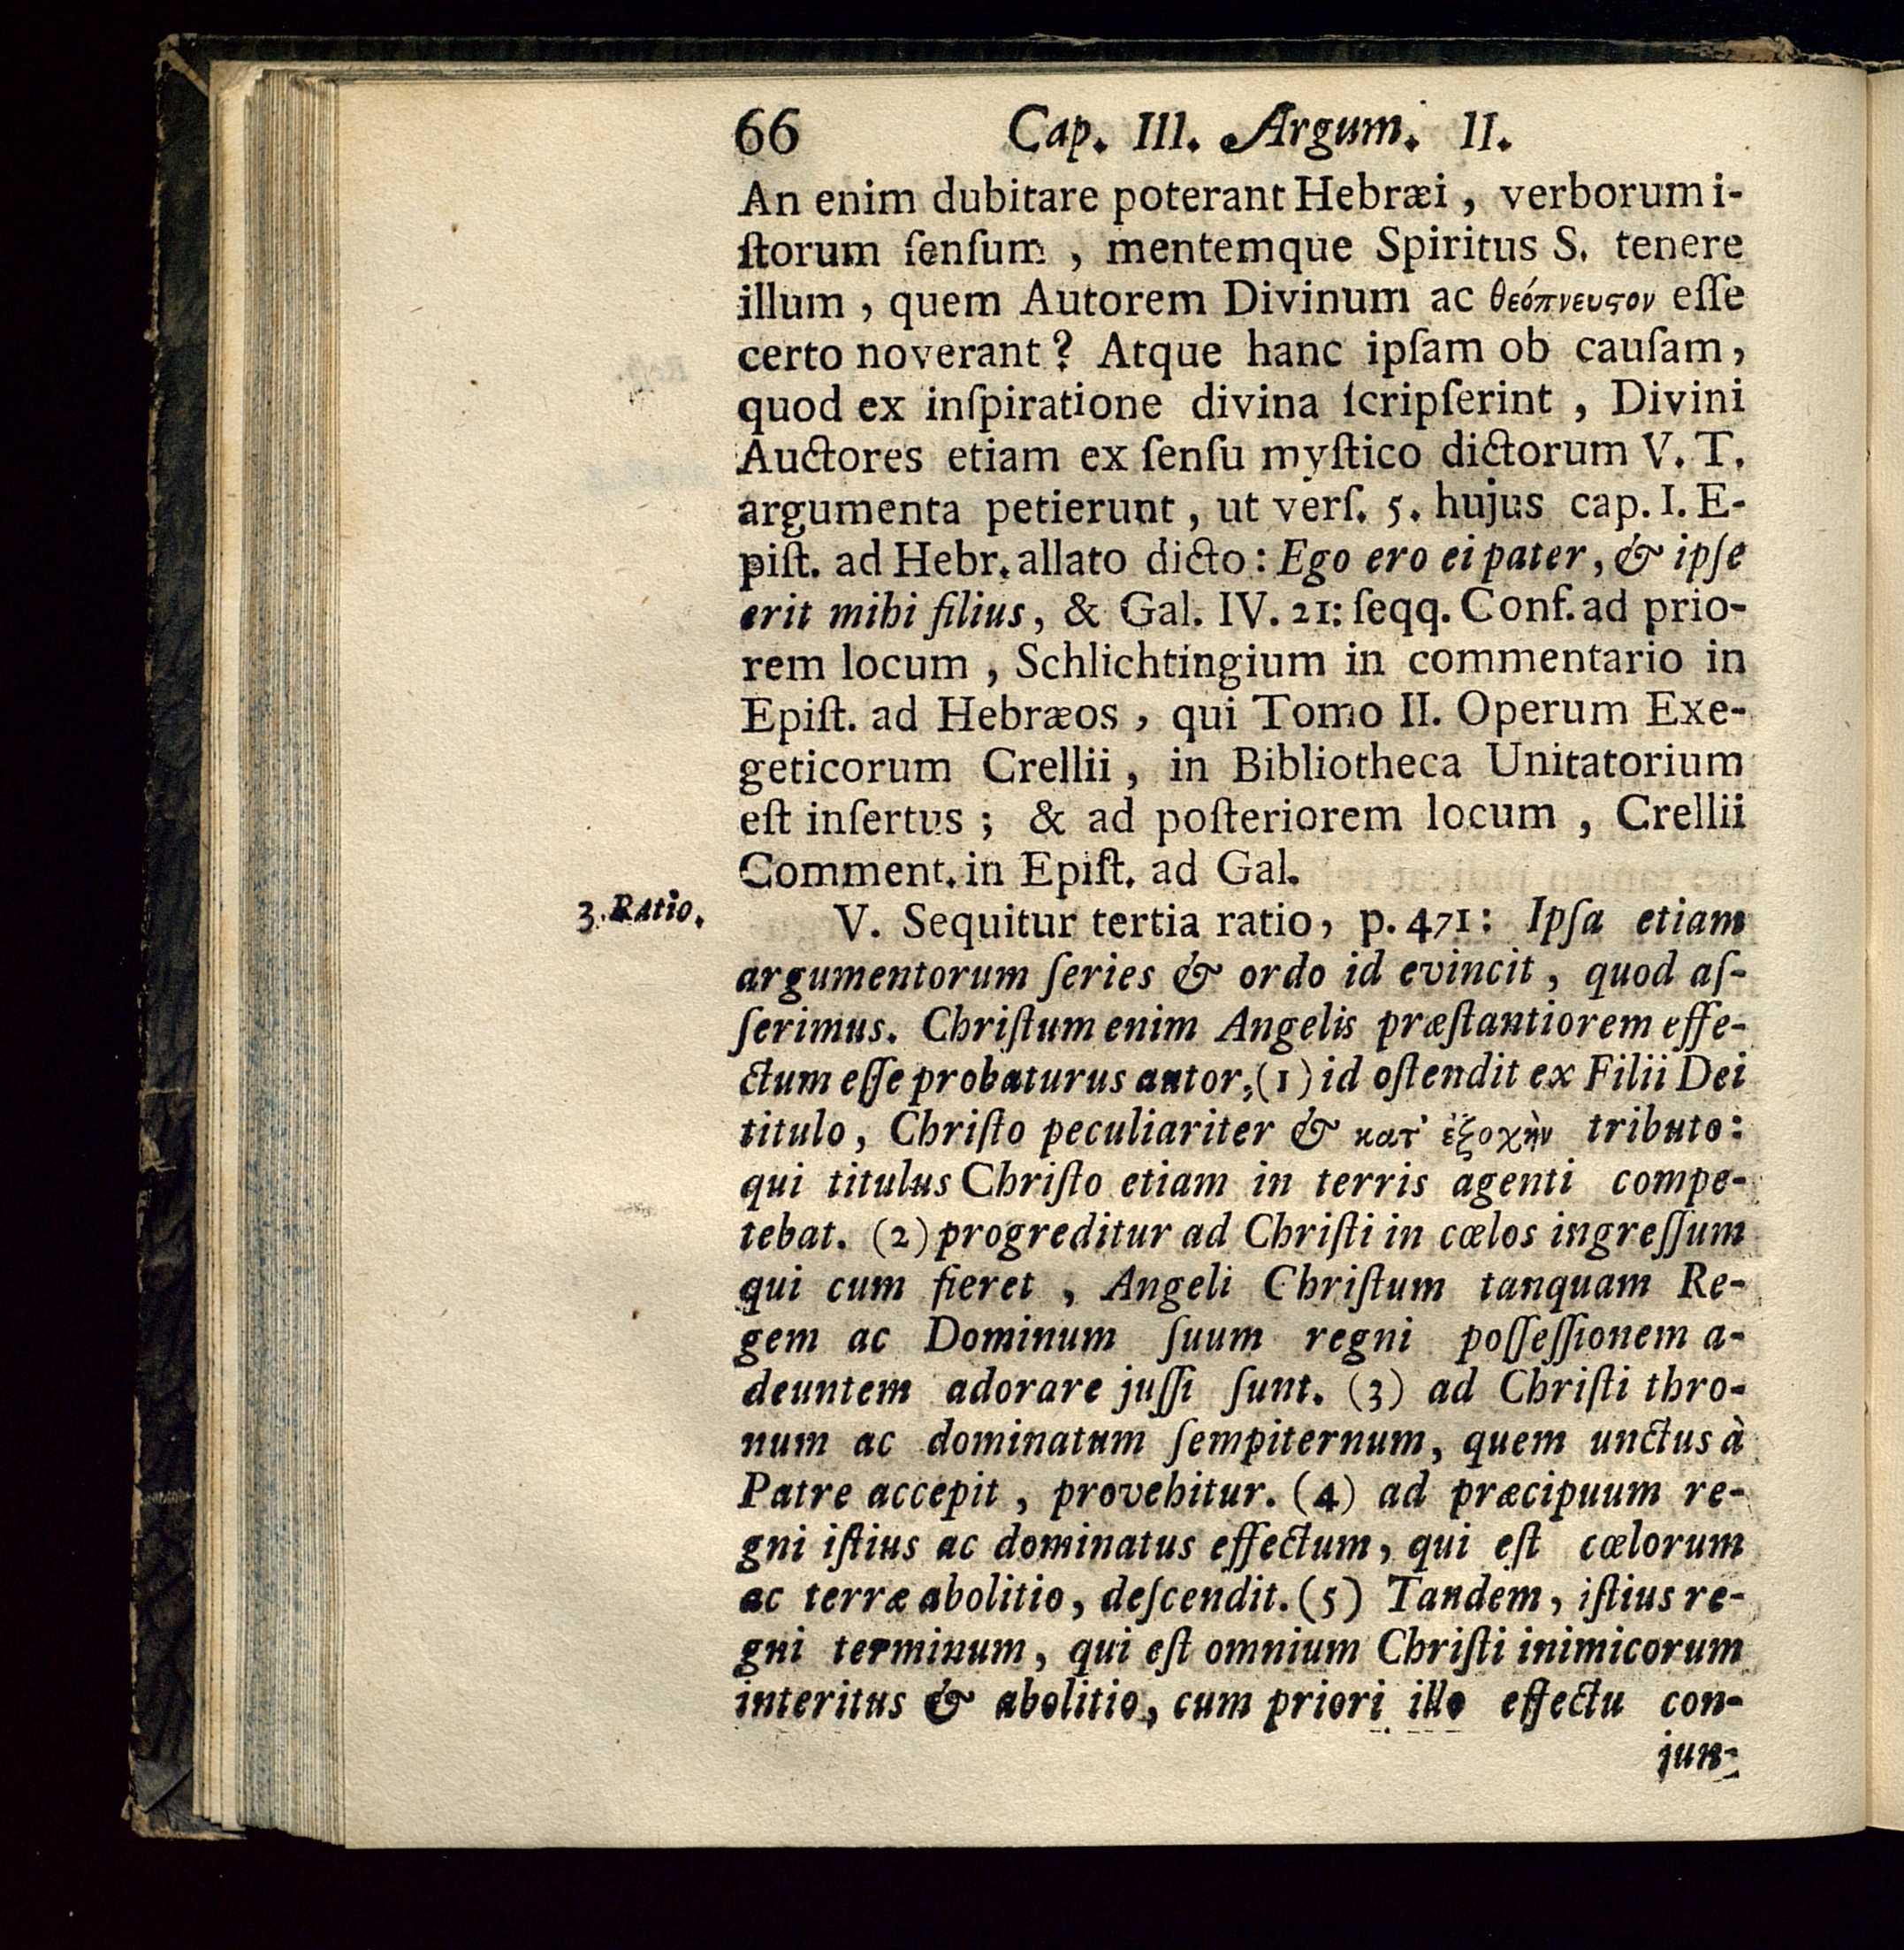 66 Cap. III. Argum. II.
An enim dubitare poterant Hebræi, verborum i-
ſtorum ſenſum, mentemque Spiritus S. tenere
illum, quem Autorem Divinum ac θεόπνευϛον eſſe
certo noverant? Atque hanc ipſam ob cauſam,
quod ex inſpiratione divina ſcripſerint, Divini
Auctores etiam ex ſenſu myſtico dictorum V. T.
argumenta petierunt, ut verſ. 5. hujus cap. I. E-
piſt. ad Hebr. allato dicto: Ego ero ei pater, & ipſe
erit mihi filius, & Gal. IV. 21: ſeqq. Conf. ad prio-
rem locum, Schlichtingium in commentario in
Epiſt. ad Hebræos, qui Tomo II. Operum Exe-
geticorum Crellii, in Bibliotheca Unitatorium
eſt inſertus; & ad poſteriorem locum, Crellii
Comment. in Epiſt. ad Gal.
3. Ratio.
V. Sequitur tertia ratio, p. 471: Ipſa etiam
argumentorum ſeries & ordo id evincit, quod aſ-
ſerimus. Chriſtum enim Angelis præſtantiorem effe-
ctum eſſe probaturus autor, (1) id oſtendit ex Filii Dei
titulo, Chriſto peculiariter & κατ' ἐξοχὴν tributo:
qui titulus Chriſto etiam in terris agenti compe-
tebat. (2) progreditur ad Chriſti in cœlos ingreſſum
qui cum fieret, Angeli Chriſtum tanquam Re-
gem ac Dominum ſuum regni poſſeſſionem a-
deuntem adorare juſſi ſunt. (3) ad Chriſti thro-
num ac dominatum ſempiternum, quem unctus à
Patre accepit, provehitur. (4) ad præcipuum re-
gni iſtius ac dominatus effectum, qui eſt cœlorum
ac terræ abolitio, deſcendit. (5) Tandem, iſtius re-
gni terminum, qui eſt omnium Chriſti inimicorum
interitus & abolitio, cum priori illo effectu con-
jun-